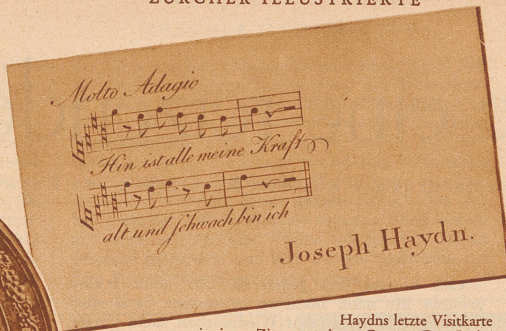 ZÜRCHER ILLUSTRIERTE
Molto Adagio
Hin ist alle meine Kraft
alt und schwach bin ich
Joseph Haydn.
Haydns letzte Visitkarte